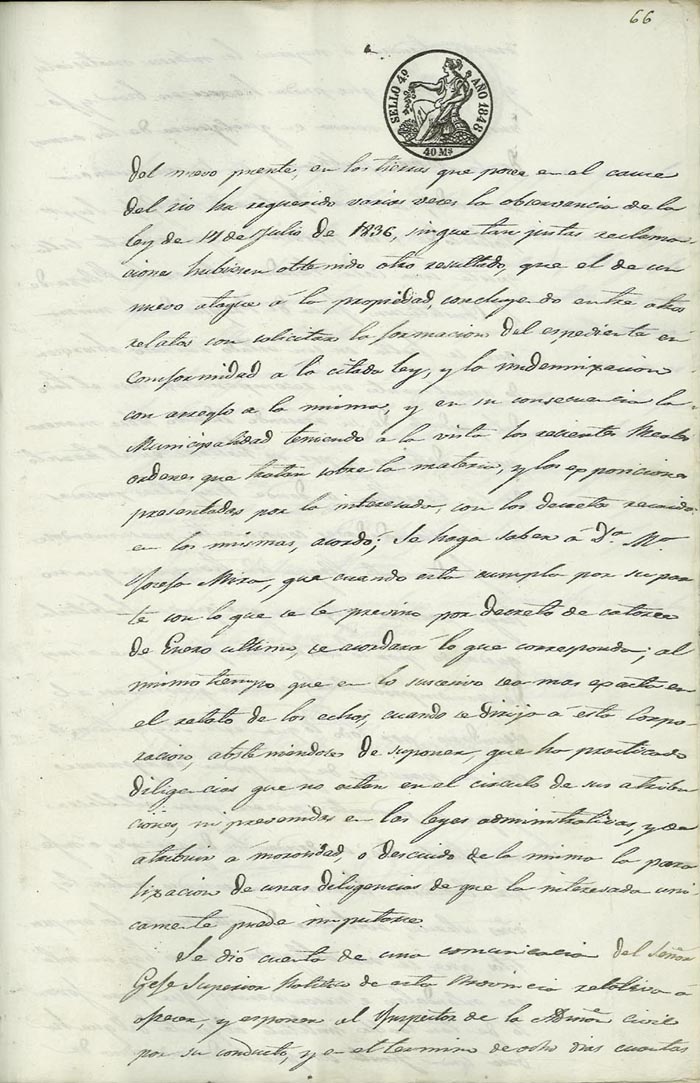 66
SELLO 4º AÑO 1848
40 Ms
del nuevo puente, en los tierras que posee en el cauce
del rio ha requerido varias veces la observancia de la
ley de 14 de Julio de 1836, sin que tan justas reclama
ciones hubiesen obtenido otro resultado, que el de un
nuevo ataque á la propiedad, concluyendo entre otros
relatos con solicitar la formacion del espediente en
conformidad a la citada ley, y la indemnizacion
con arreglo a la misma, y en su consecuencia la
Municipalidad teniendo a la vista las recientes Reales
ordenes que tratan sobre la materia, y los exposiciones
presentadas por la interesada, con los decretos
en los mismas, acordó; Se haga saber á Dª. Mª
Josefa Mira, que cuando esta cumpla por su par
te con lo que se le previno por decreto de catorce
de Enero ultimo, se acordará lo que corresponda; al
mismo tiempo que en lo sucesivo sea mas exacta en
el relato de los echos, cuando se dirija á esta Corpo
racion, absteniendose de suponer, que ha practicado
diligencias que no estan en el circulo de sus atribu
ciones, ni prevenidas en las leyes administrativas, y de
atribuir á morosidad, o descuido de la misma la para
lizacion de unas diligencias de que la interesada uni
camente puede imputarse.
Se dió cuenta de una comunicacion del Señor
Gefe Superior Politico de esta Provincia relativa á
ofrecer, y esponer al Inspector de la Admon. civil
por su conducto, y en el termino de ocho dias cuantas